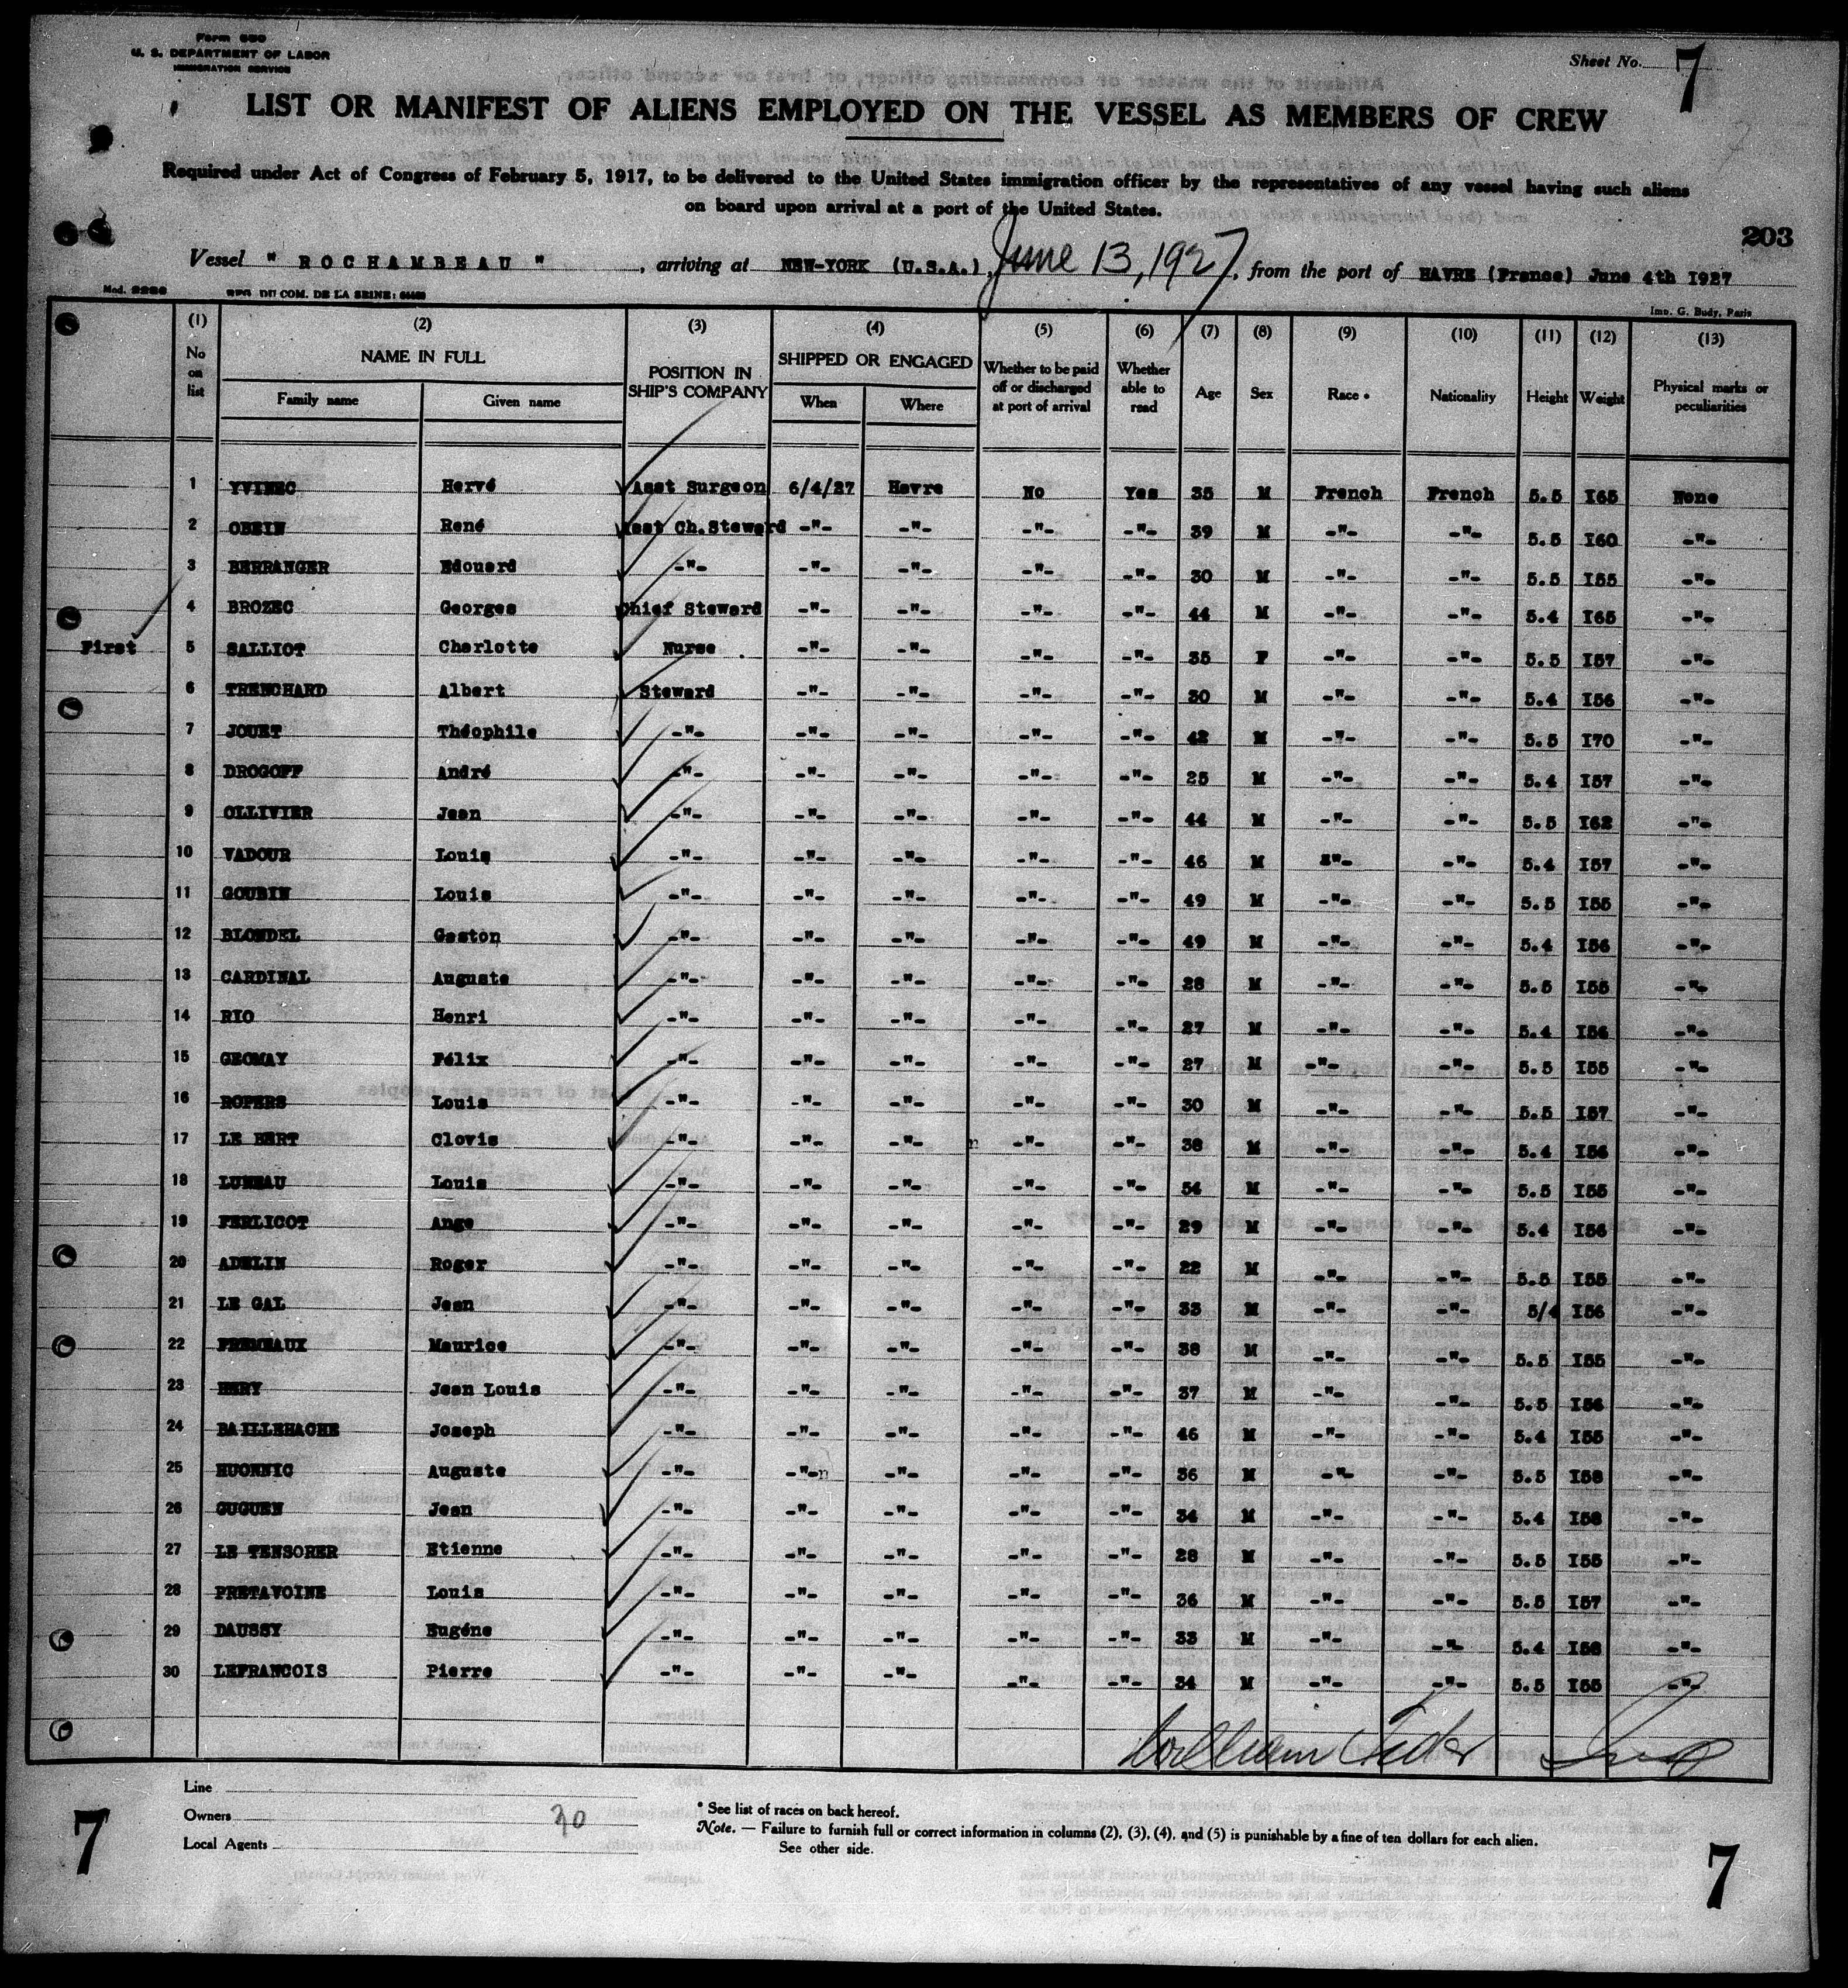 Form 680
U. S. DEPARTMENT OF LABOR
IMMIGRATION SERVICE
Sheet No. 7
LIST OR MANIFEST OF ALIENS EMPLOYED ON THE VESSEL AS MEMBERS OF CREW
Required under Act of Congress of February 5, 1917, to be delivered to the United States immigration officer by the representatives of any vessel having such aliens
on board upon arrival at a port of the United States.
203
Vessel " ROCHAMBEAU " , arriving at NEW-YORK (U.S.A.), June 13, 1927, from the port of HAVRE (France) June 4th I927
DU COM. DE LA SEINE:
Imp. G. Body, Paris
(1) (2) (3) (4) (5) (6) (7) (8) (9) (10) (11) (12) (13)
No on list NAME IN FULL Family name Given name POSITION IN SHIP'S COMPANY SHIPPED OR ENGAGED When Where Whether to be paid off or discharged at port of arrival Whether able to read Age Sex Race * Nationality Height Weight Physical marks or peculiarities
1 YVINEC Hervé Asst Surgeon 6/4/27 Havre No Yes 35 M French French 5.5 I65 None
2 OBEIN René Asst Ch.Steward -"- -"- -"- -"- 39 M -"- -"- 5.5 I60 -"-
3 BERRANGER Edouard -"- -"- -"- -"- -"- 30 M -"- -"- 5.5 I55 -"-
4 BROZEC Georges Chief Steward -"- -"- -"- -"- 44 M -"- -"- 5.4 I65 -"-
First 5 SALLIOT Charlotte Nurse -"- -"- -"- -"- 35 F -"- -"- 5.5 I57 -"-
6 TRENCHARD Albert Steward -"- -"- -"- -"- 30 M -"- -"- 5.4 I56 -"-
7 JOUET Théophile -"- -"- -"- -"- -"- 42 M -"- -"- 5.5 I70 -"-
8 DROGOFF André -"- -"- -"- -"- -"- 25 M -"- -"- 5.4 I57 -"-
9 OLLIVIER Jean -"- -"- -"- -"- -"- 44 M -"- -"- 5.5 I62 -"-
10 VADOUR Louis -"- -"- -"- -"- -"- 46 M -"- -"- 5.4 I57 -"-
11 GOUBIN Louis -"- -"- -"- -"- -"- 49 M -"- -"- 5.5 I55 -"-
12 BLONDEL Gaston -"- -"- -"- -"- -"- 49 M -"- -"- 5.4 I56 -"-
13 CARDINAL Auguste -"- -"- -"- -"- -"- 28 M -"- -"- 5.5 I55 -"-
14 RIO Henri -"- -"- -"- -"- -"- 27 M -"- -"- 5.4 I56 -"-
15 GEOMAY Félix -"- -"- -"- -"- -"- 27 M -"- -"- 5.5 I55 -"-
16 ROPERS Louis -"- -"- -"- -"- -"- 30 M -"- -"- 5.5 I57 -"-
17 LE BERT Clovis -"- -"- -"- -"- -"- 38 M -"- -"- 5.4 I56 -"-
18 LUNEAU Louis -"- -"- -"- -"- -"- 54 M -"- -"- 5.5 I55 -"-
19 PERLICOT Ange -"- -"- -"- -"- -"- 29 M -"- -"- 5.4 I56 -"-
20 ADELIN Roger -"- -"- -"- -"- -"- 22 M -"- -"- 5.5 I55 -"-
21 LE GAL Jean -"- -"- -"- -"- -"- 33 M -"- -"- 5/4 I56 -"-
22 FREMEAUX Maurice -"- -"- -"- -"- -"- 38 M -"- -"- 5.5 I55 -"-
23 HERY Jean Louis -"- -"- -"- -"- -"- 37 M -"- -"- 5.5 I56 -"-
24 BAILLEHACHE Joseph -"- -"- -"- -"- -"- 46 M -"- -"- 5.4 I55 -"-
25 HUONNIC Auguste -"- -"- -"- -"- -"- 36 M -"- -"- 5.5 I58 -"-
26 GUGUEN Jean -"- -"- -"- -"- -"- 34 M -"- -"- 5.4 I58 -"-
27 LE TENSORER Etienne -"- -"- -"- -"- -"- 28 M -"- -"- 5.5 I55 -"-
28 PRETAVOINE Louis -"- -"- -"- -"- -"- 36 M -"- -"- 5.5 I57 -"-
29 DAUSSY Eugéne -"- -"- -"- -"- -"- 33 M -"- -"- 5.4 I58 -"-
30 LEFRANCOIS Pierre -"- -"- -"- -"- -"- 34 M -"- -"- 5.5 I55 -"-
William
Line
Owners 30
Local Agents
* See list of races on back hereof.
Note. — Failure to furnish full or correct information in columns (2), (3), (4), and (5) is punishable by a fine of ten dollars for each alien.
See other side.
7
7